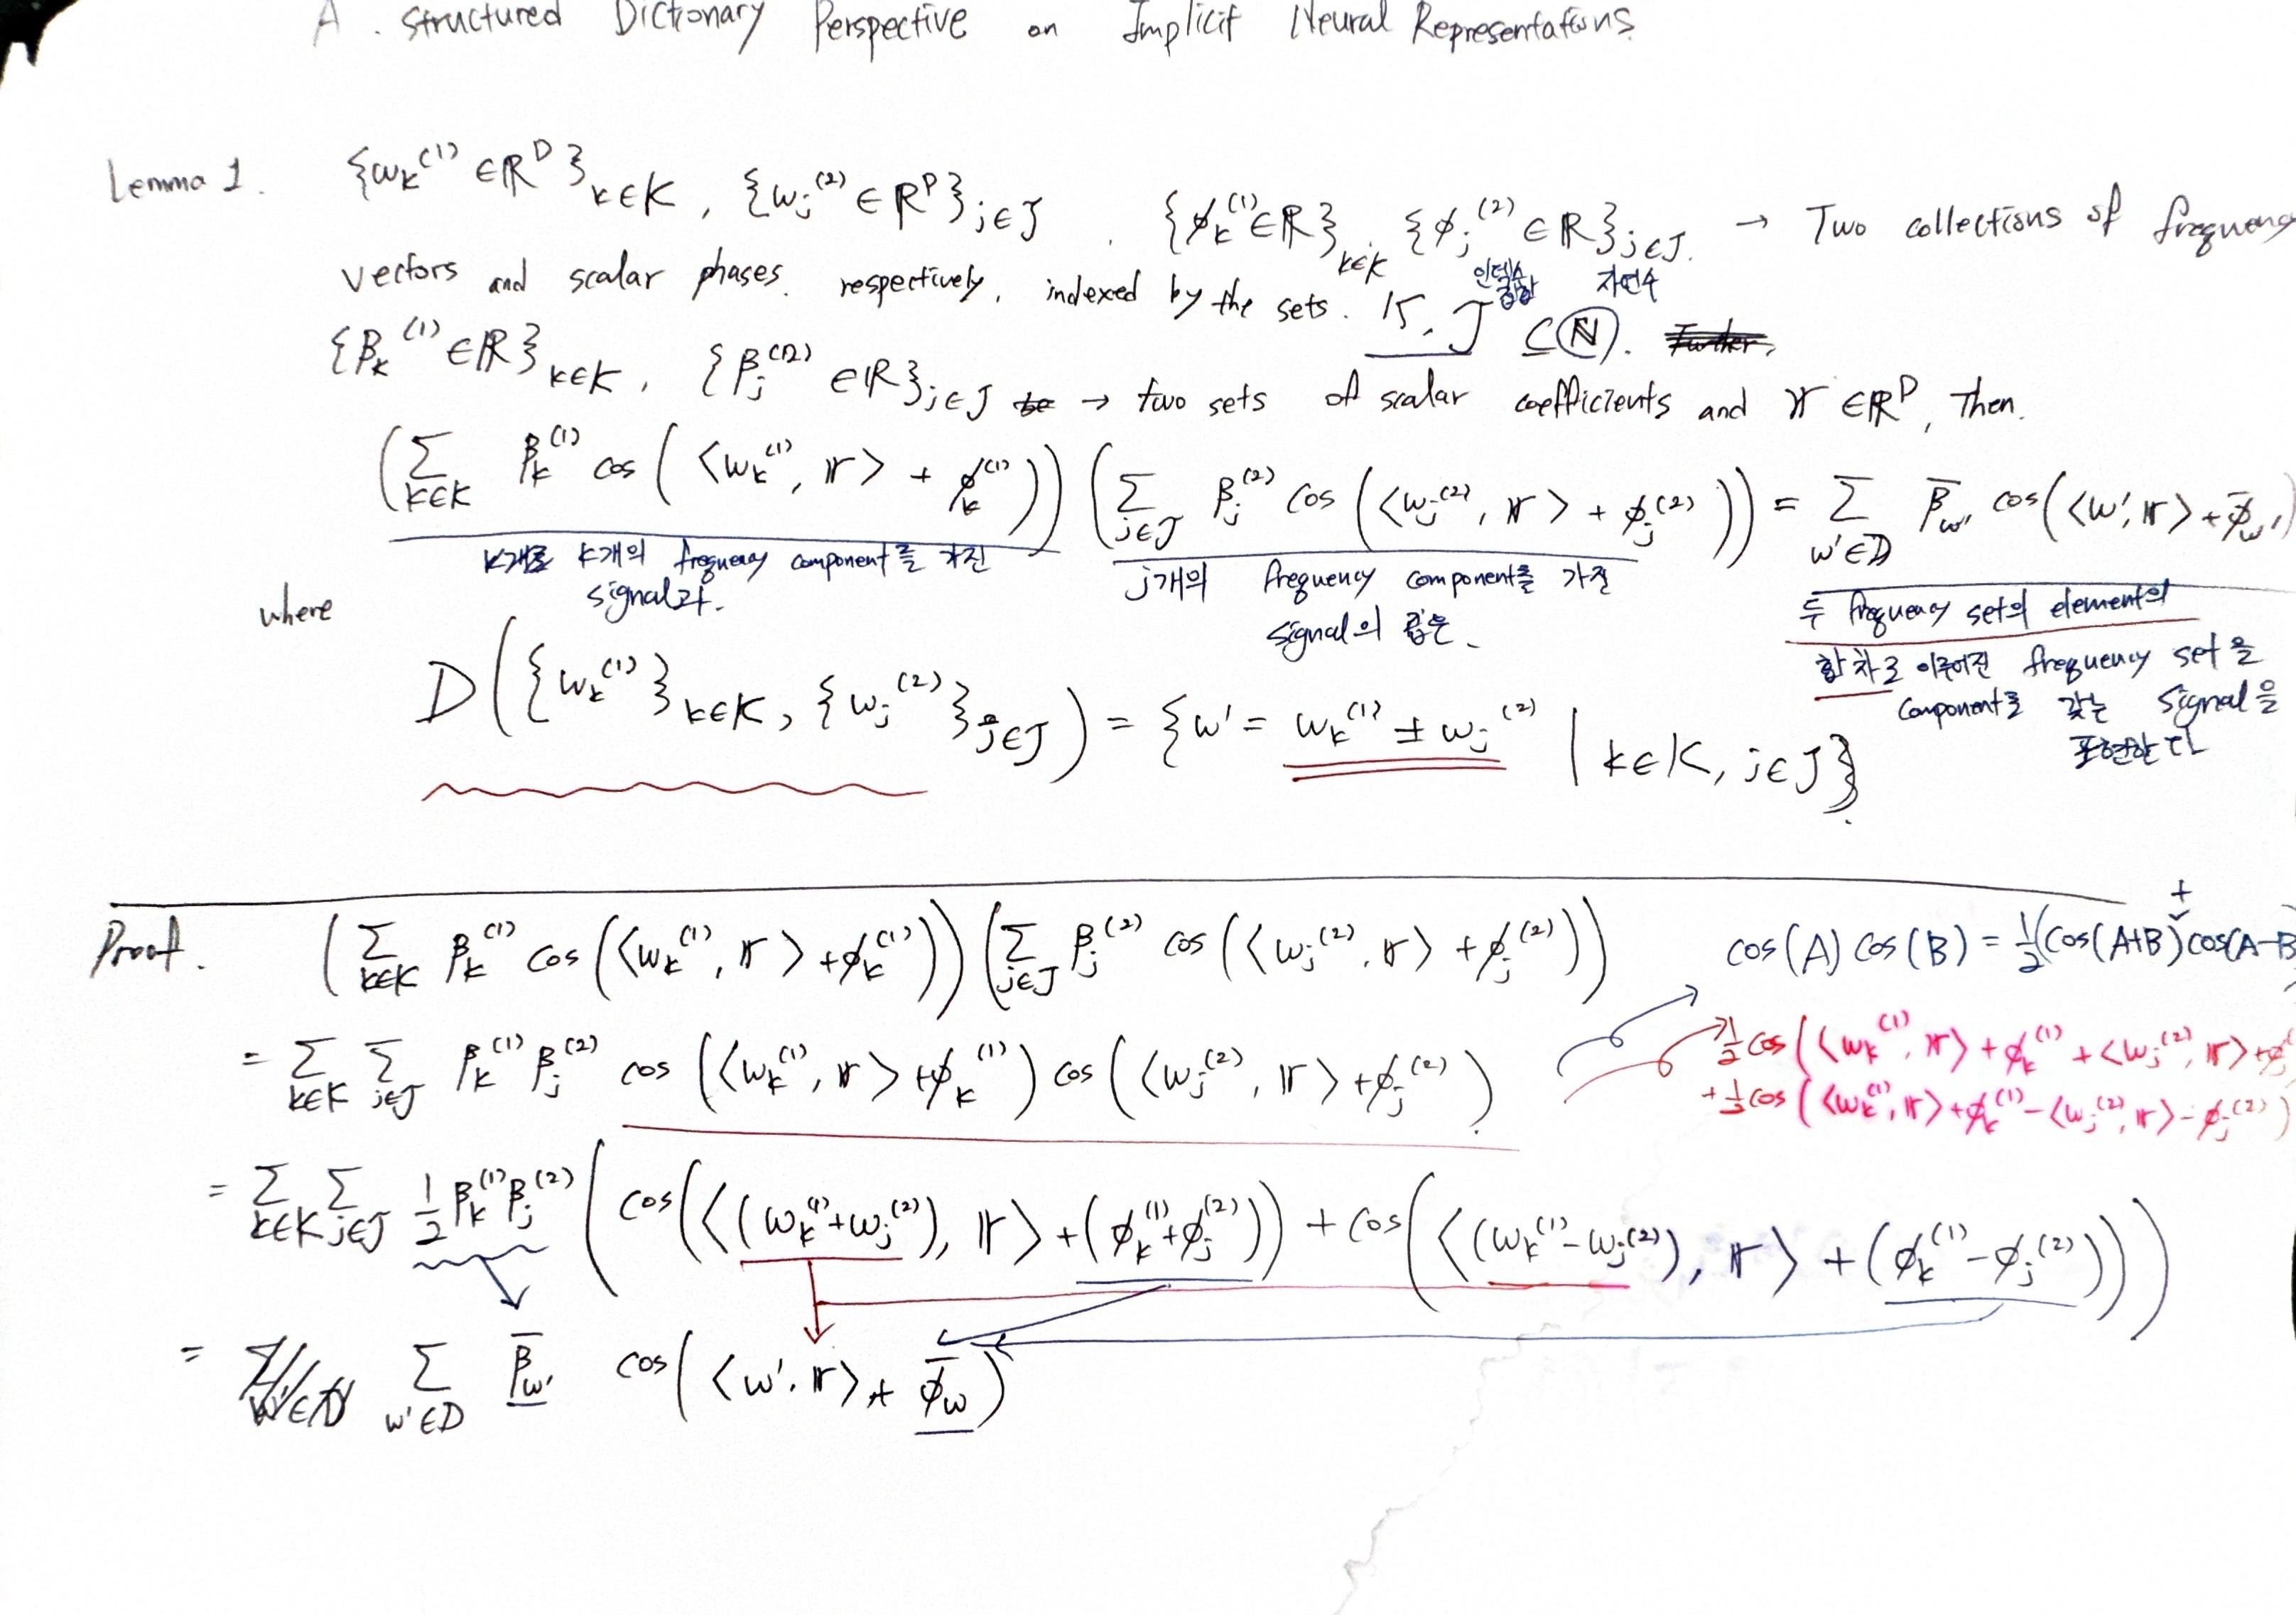 A Structured Dictionary Perspective on Implicit Neural Representations.
Lemma 1. {ω_k^(1) ∈ ℝ^D}_{k∈K}, {ω_j^(2) ∈ ℝ^D}_{j∈J}, {φ_k^(1) ∈ ℝ}_{k∈K} {φ_j^(2) ∈ ℝ}_{j∈J}. → Two collections of frequency
인덱스 집합 자연수
vectors and scalar phases. respectively, indexed by the sets. K, J ⊆ ℕ.
{β_k^(1) ∈ ℝ}_{k∈K}, {β_j^(2) ∈ ℝ}_{j∈J} → two sets of scalar coefficients and r ∈ ℝ^D, Then.
(Σ_{k∈K} β_k^(1) cos(⟨ω_k^(1), r⟩ + φ_k^(1))) (Σ_{j∈J} β_j^(2) cos(⟨ω_j^(2), r⟩ + φ_j^(2))) = Σ_{ω'∈D} β̄_ω' cos(⟨ω', r⟩ + φ̄_ω')
K개의 frequency component를 가진
signal과.
j개의 frequency component를 가진
signal의 곱은.
두 frequency set의 element의
합 차로 이루어진 frequency set을
component로 갖는 signal을
표현한다
where
D({ω_k^(1)}_{k∈K}, {ω_j^(2)}_{j∈J}) = {ω' = ω_k^(1) ± ω_j^(2) | k∈K, j∈J}.
Proof. (Σ_{k∈K} β_k^(1) cos(⟨ω_k^(1), r⟩ + φ_k^(1))) (Σ_{j∈J} β_j^(2) cos(⟨ω_j^(2), r⟩ + φ_j^(2)))
cos(A) cos(B) = 1/2(cos(A+B) + cos(A-B)
= Σ_{k∈K} Σ_{j∈J} β_k^(1) β_j^(2) cos(⟨ω_k^(1), r⟩ + φ_k^(1)) cos(⟨ω_j^(2), r⟩ + φ_j^(2)).
1/2 cos(⟨ω_k^(1), r⟩ + φ_k^(1) + ⟨ω_j^(2), r⟩ + φ_j
+ 1/2 cos(⟨ω_k^(1), r⟩ + φ_k^(1) - ⟨ω_j^(2), r⟩ - φ_j^(2))
= Σ_{k∈K} Σ_{j∈J} 1/2 β_k^(1) β_j^(2) (cos(⟨(ω_k^(1) + ω_j^(2)), r⟩ + (φ_k^(1) + φ_j^(2))) + cos(⟨(ω_k^(1) - ω_j^(2)), r⟩ + (φ_k^(1) - φ_j^(2))))
= Σ_{ω'∈D} β̄_ω' cos(⟨ω', r⟩ + φ̄_ω)